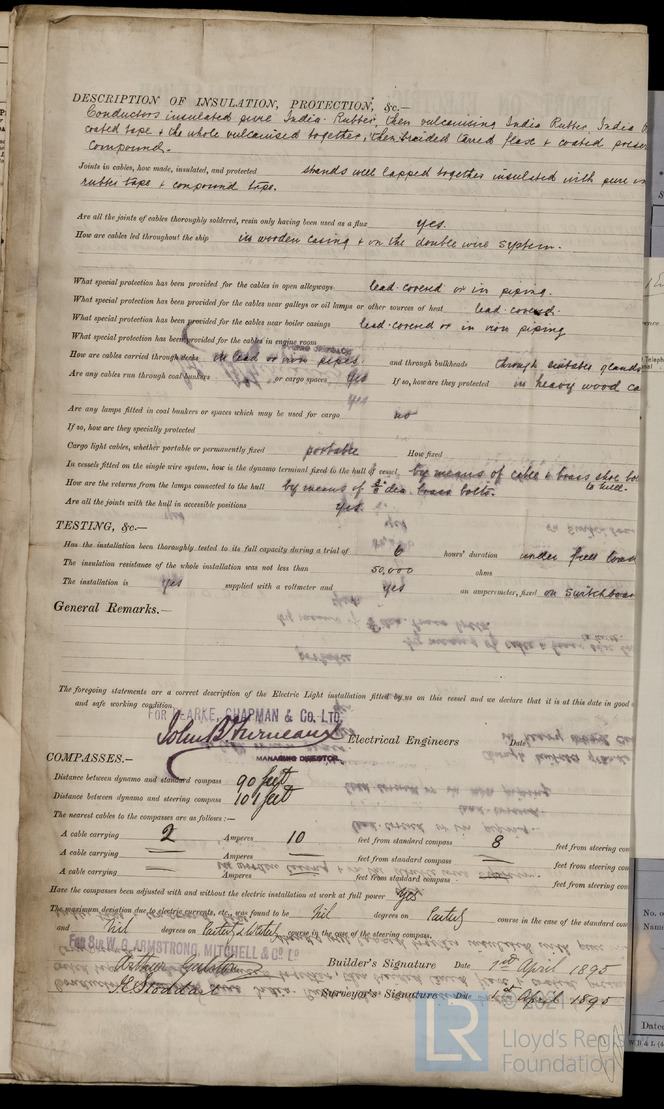 DESCRIPTION OF INSULATION, PROTECTION, &c.—
Conductors insulated pure India Rubber, then vulcanising India Rubber, India
coated tape & the whole vulcanised together, then braided tarred flax & coated
compound.
Joints in cables, how made, insulated, and protected strands well lapped together insulated with pure
rubber tape & compound tape.
Are all the joints of cables thoroughly soldered, resin only having been used as a flux yes.
How are cables led throughout the ship in wooden casing & on the double wire system.
What special protection has been provided for the cables in open alleyways lead-covered or in piping.
What special protection has been provided for the cables near galleys or oil lamps or other sources of heat lead-covered.
What special protection has been provided for the cables near boiler casings lead-covered or in iron piping
What special protection has been provided for the cables in engine room
How are cables carried through decks in lead or iron pipes. and through bulkheads through suitable glands
Are any cables run through coal bunkers or cargo spaces, yes If so, how are they protected in heavy wood
yes
Are any lamps fitted in coal bunkers or spaces which may be used for cargo no
If so, how are they specially protected
Cargo light cables, whether portable or permanently fixed portable How fixed
In vessels fitted on the single wire system, how is the dynamo terminal fixed to the hull of vessel, by means of cable & brass shoe
to hull.
How are the returns from the lamps connected to the hull by means of dia. brass bolts.
Are all the joints with the hull in accessible positions yes.
TESTING, &c.—
Has the installation been thoroughly tested to its full capacity during a trial of 6 hours' duration under full load
The insulation resistance of the whole installation was not less than 50,000 ohms
The installation is yes supplied with a voltmeter and yes an amperemeter, fixed on switchboard
General Remarks.—
The foregoing statements are a correct description of the Electric Light installation fitted by us on this vessel and we declare that it is at this date in good
and safe working condition.
FOR CLARKE, CHAPMAN & Co. LTD.
John B. Furneaux Electrical Engineers Date
MANAGING DIRECTOR.
COMPASSES.—
Distance between dynamo and standard compass 90 feet
Distance between dynamo and steering compass 101 feet
The nearest cables to the compasses are as follows:—
A cable carrying 2 Amperes 10 feet from standard compass 8 feet from steering com
A cable carrying Amperes feet from standard compass feet from steering com
A cable carrying Amperes feet from standard compass feet from steering com
Have the compasses been adjusted with and without the electric installation at work at full power Yes
The maximum deviation due to electric currents, etc. was found to be Nil degrees on Easterly course in the case of the standard com
and Nil degrees on Easterly & Westerly course in the case of the steering compass.
For Sir W. G. ARMSTRONG, MITCHELL & Co. Ld
Builder's Signature Date 1st April 1895
Stoddart Surveyor's Signature Date 1st April 1895
© 2021
LR
Lloyd's Regis
Foundation